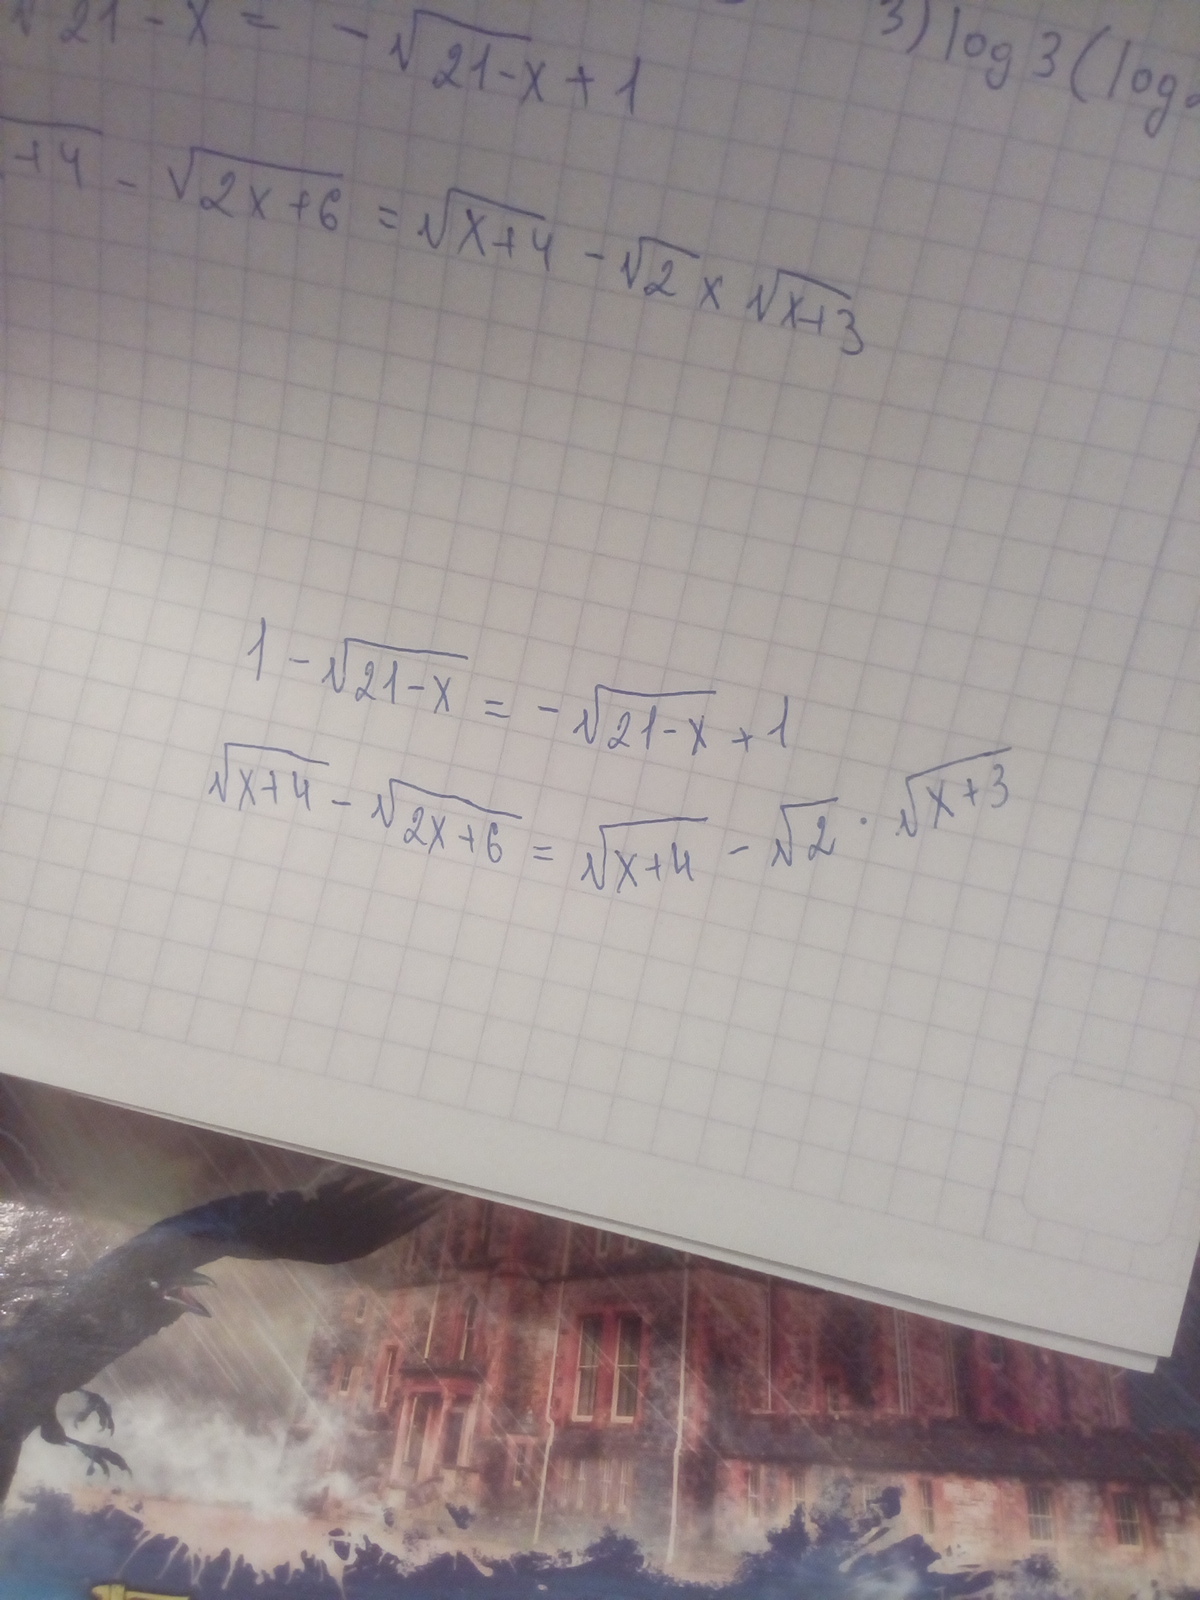 √21-x = -√21-x + 1
3) log 3 (log
+4 - √2x+6 = √x+4 - √2 x √x+3
1 - √21-x = -√21-x + 1
√x+4 - √2x+6 = √x+4 - √2 · √x+3